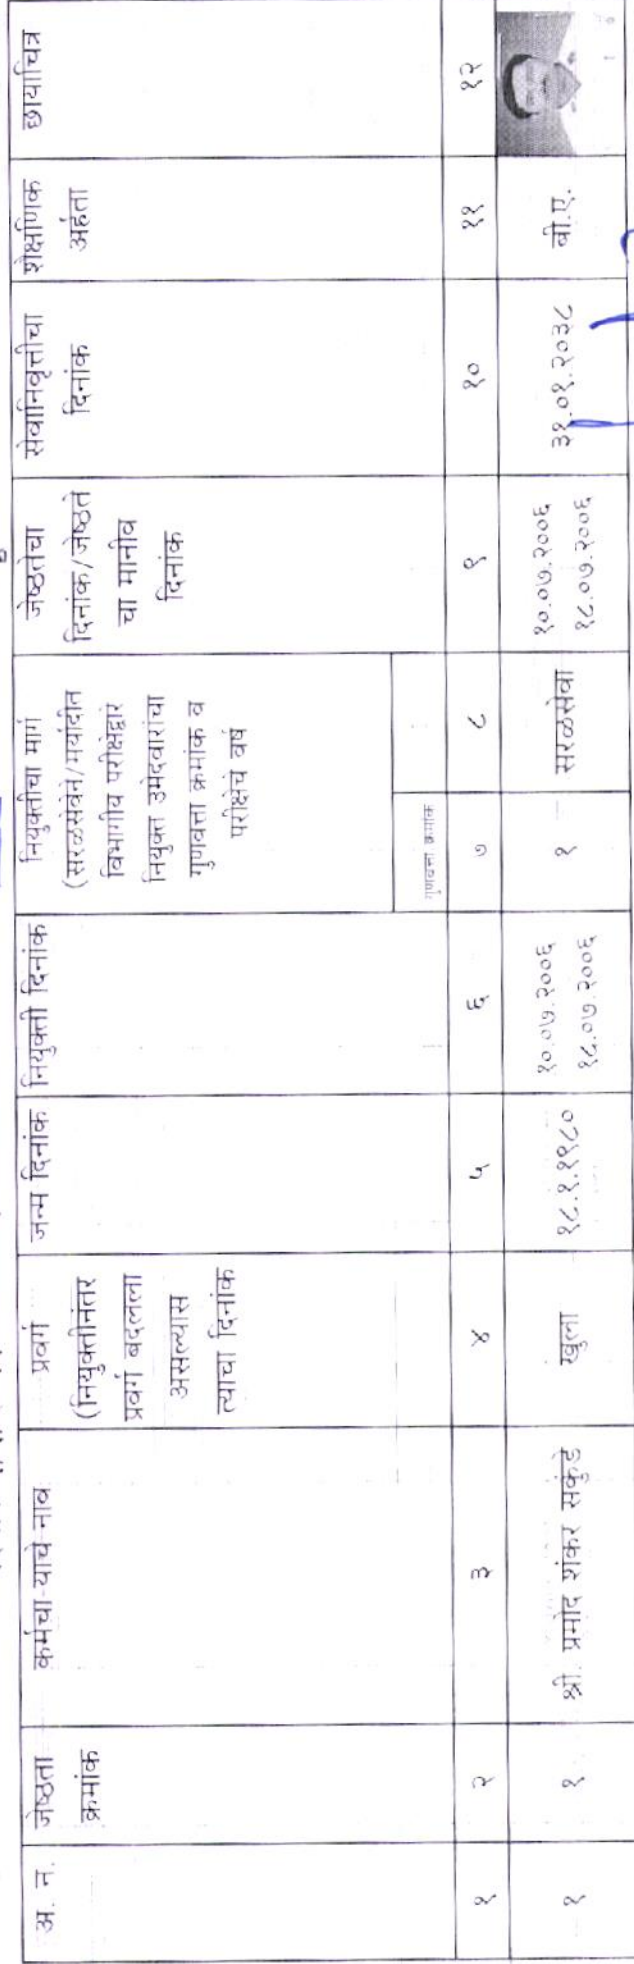 अ. नं.
जेष्ठता
क्रमांक
कर्मचा-याचे नाव
प्रवर्ग
(नियुक्तीनंतर
प्रवर्ग बदलला
असल्यास
त्याचा दिनांक
जन्म दिनांक
नियुक्ती दिनांक
नियुक्तीचा मार्ग
(सरळसेवेने/मर्यादीत
विभागीय परीक्षेद्वारे
नियुक्त उमेदवारांचा
गुणवत्ता क्रमांक व
परीक्षेचे वर्ष
गुणवत्ता क्रमांक
जेष्ठतेचा
दिनांक/जेष्ठते
चा मानीव
दिनांक
सेवानिवृत्तीचा
दिनांक
शैक्षणिक
अर्हता
छायाचित्र
१ २ ३ ४ ५ ६ ७ ८ ९ १० ११ १२
१
१
श्री. प्रमोद शंकर सकुंडे
खुला
१८.१.१९८०
१०.०७.२००६
१८.०७.२००६
१
सरळसेवा
१०.०७.२००६
१८.०७.२००६
३१.०१.२०३८
बी.ए.